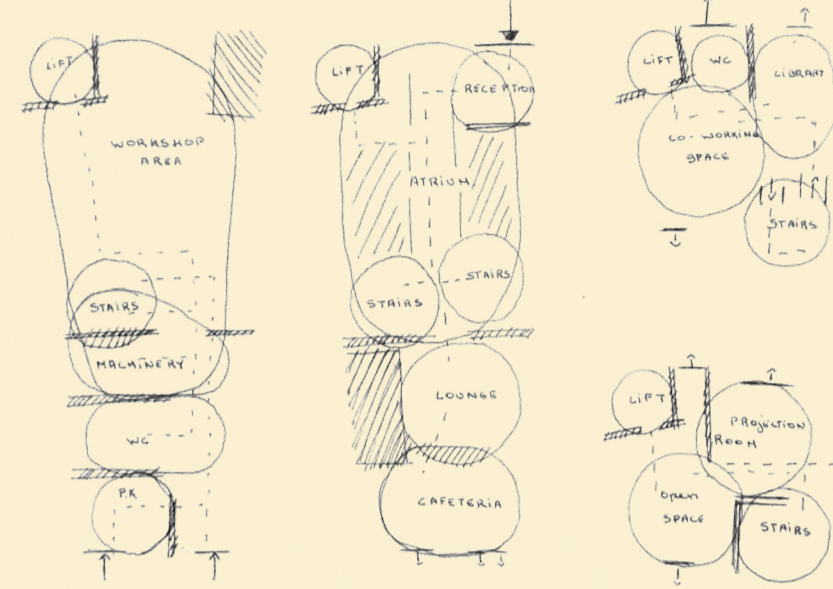 LIFT
WORKSHOP
AREA
STAIRS
MACHINERY
WC
P.K
LIFT
RECEPTION
ATRIUM
STAIRS
STAIRS
LOUNGE
CAFETERIA
LIFT
WC
LIBRARY
CO-WORKING
SPACE
STAIRS
LIFT
PROJECTION
ROOM
Open
SPACE
STAIRS